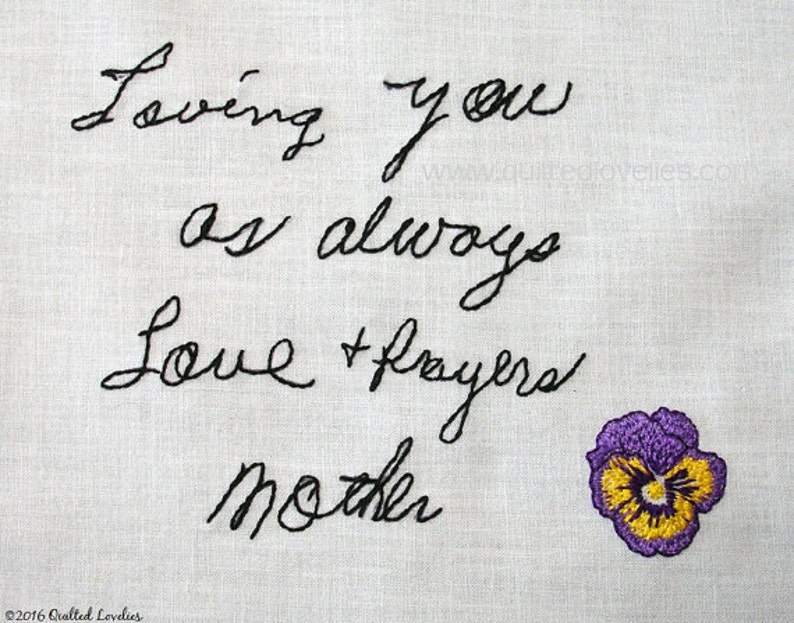 Loving you
www.quiltedlovelies.com
as always
Love + Prayers
Mother
©2016 Quilted Lovelies